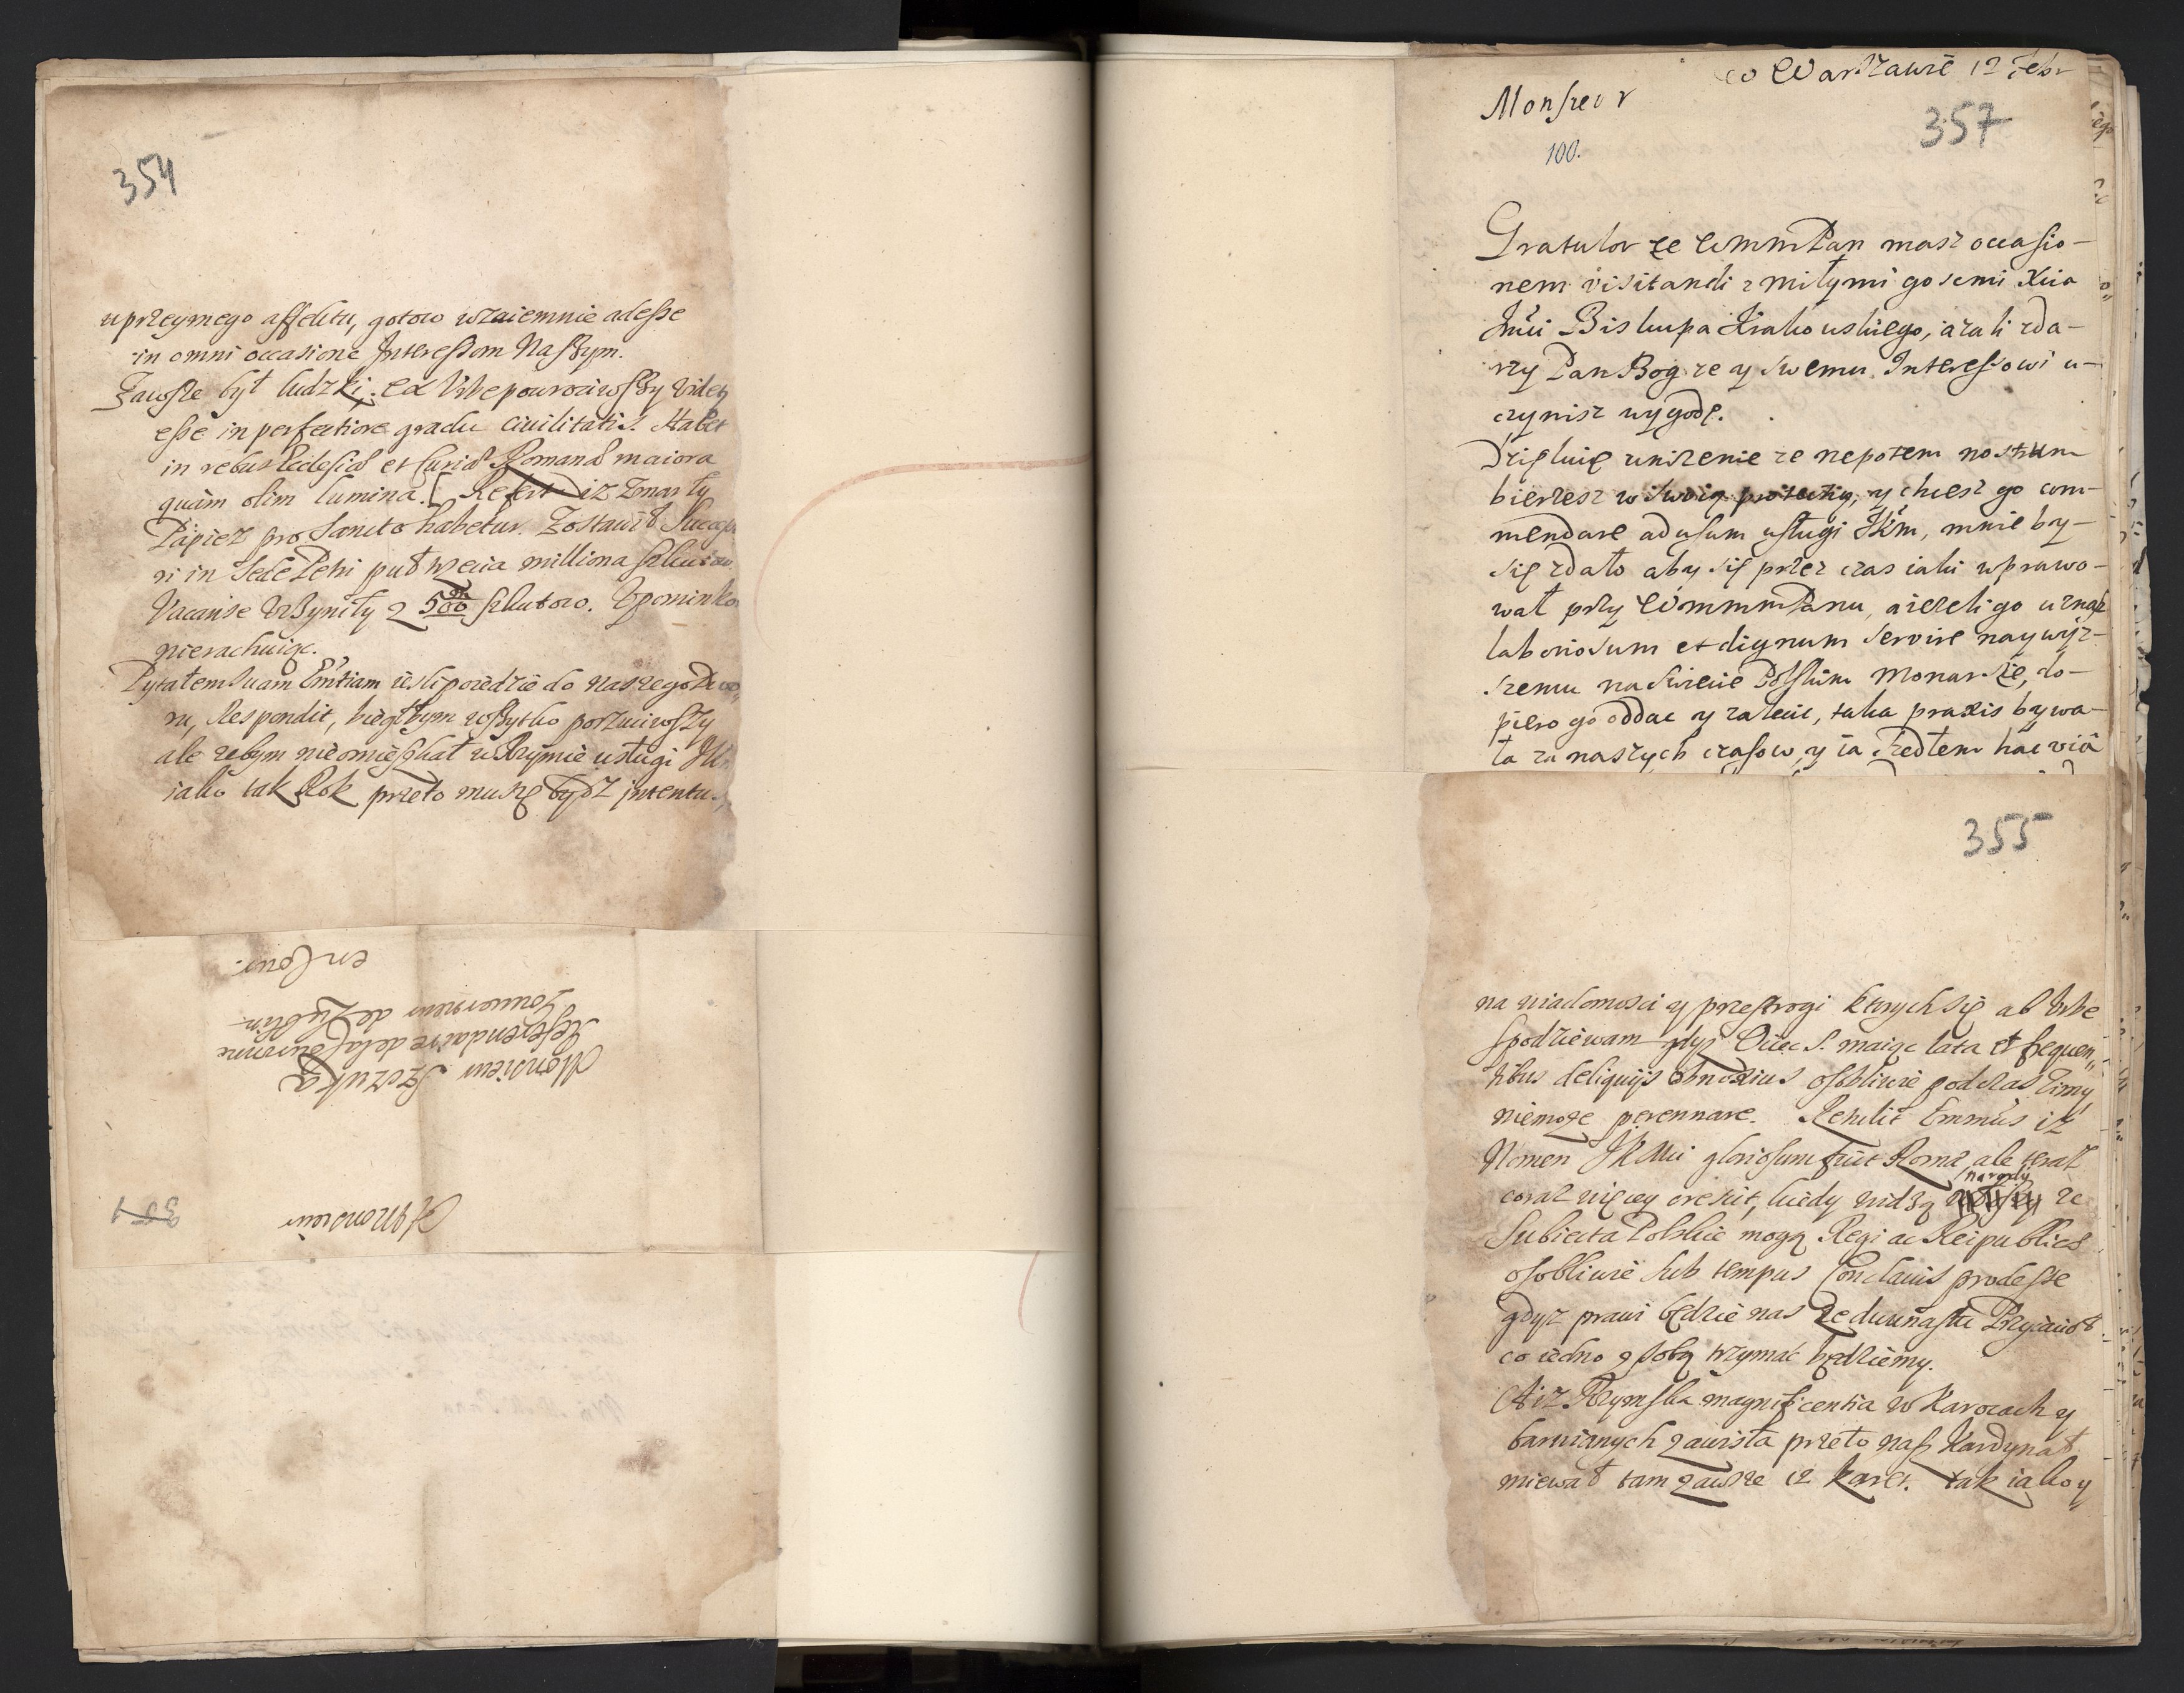 354
uprzeymego affektu, gotow wzaiemnie adesse
in omni occasione Interessom Naszym.
Zawsze był ludzki, ex Urbe powrociwszy videtur
esse in perfectiore gradu civilitatis. Habet
in rebus Ecclesiae et Curiae Romanae maiora
quàm olim lumina. Refert iz zmarły
Papież pro Sancto habetur. Zostawił
ri in Sede puł trzecia milliona
Vacanse uczyniły 500 szkutow. Upominkow
nierachuiąc.
Pytałem Suam Emtiam iesli poiedzie do Naszego
ru, Respondit, biegłbym wszytko porzuciwszy
ale zebym nieomieszkał w Rzymie usługi
iako tak Rok przeto muszę bydź intentus
en Cour.
Gouverneur de Lublin
Referendaire de la Couronne
Monsieur Szczuka
A Monsieur
354
w Warszawie 12 Febr
Monsieur
357
100.
Gratulor ze WMMPan masz occasio-
nem visitandi z miłymi goscmi Xcia
Jmci Biskupa Krakowskiego, azali zda-
rzy Pan Bog ze y swemu Interessowi u-
czynisz wygodę.
Dziękuię unizenie ze nepotem nostrum
bierzesz w swoię protectią, y chcesz go com-
mendare ad usum usługi JKM, mnie by
się zdało aby się przez czas iaki wprawo-
wał przy WMMMPanu, a iezeli go uznasz
laboriosum et dignum servire naywyz-
szemu na swiecie Polskim Monarsze, do-
piero go oddac y zalecic, taka praxis bywa-
ła za naszych czasow, y ia szedłem hac viâ
355
na wiadomosci y przestrogi ktorych się ab Urbe
spodziewam gdyż Ociec S. maiąc lata et frequen
tibus deliquijs obnoxius osobliwie podczas Zimy
niemoże perennare. Retulit Emmus iż
Nomen JKMci gloriosum fuit Romae, ale teraz
narody
coraz więcey crescit, kiedy widzą ze
Subiecta Polskie mogą Regi ac Reipublicae
osobliwie sub tempus Conclavis prodesse
gdyż prawi będzie nas ze dwunastu Przyiacioł
co iedno z sobą trzymać będziemy.
A iż Rzymska magnificentia w Karocach y
barwianych zawisła przeto nasz Kardynał
miewał tam zawsze 12 karet. tak iako y